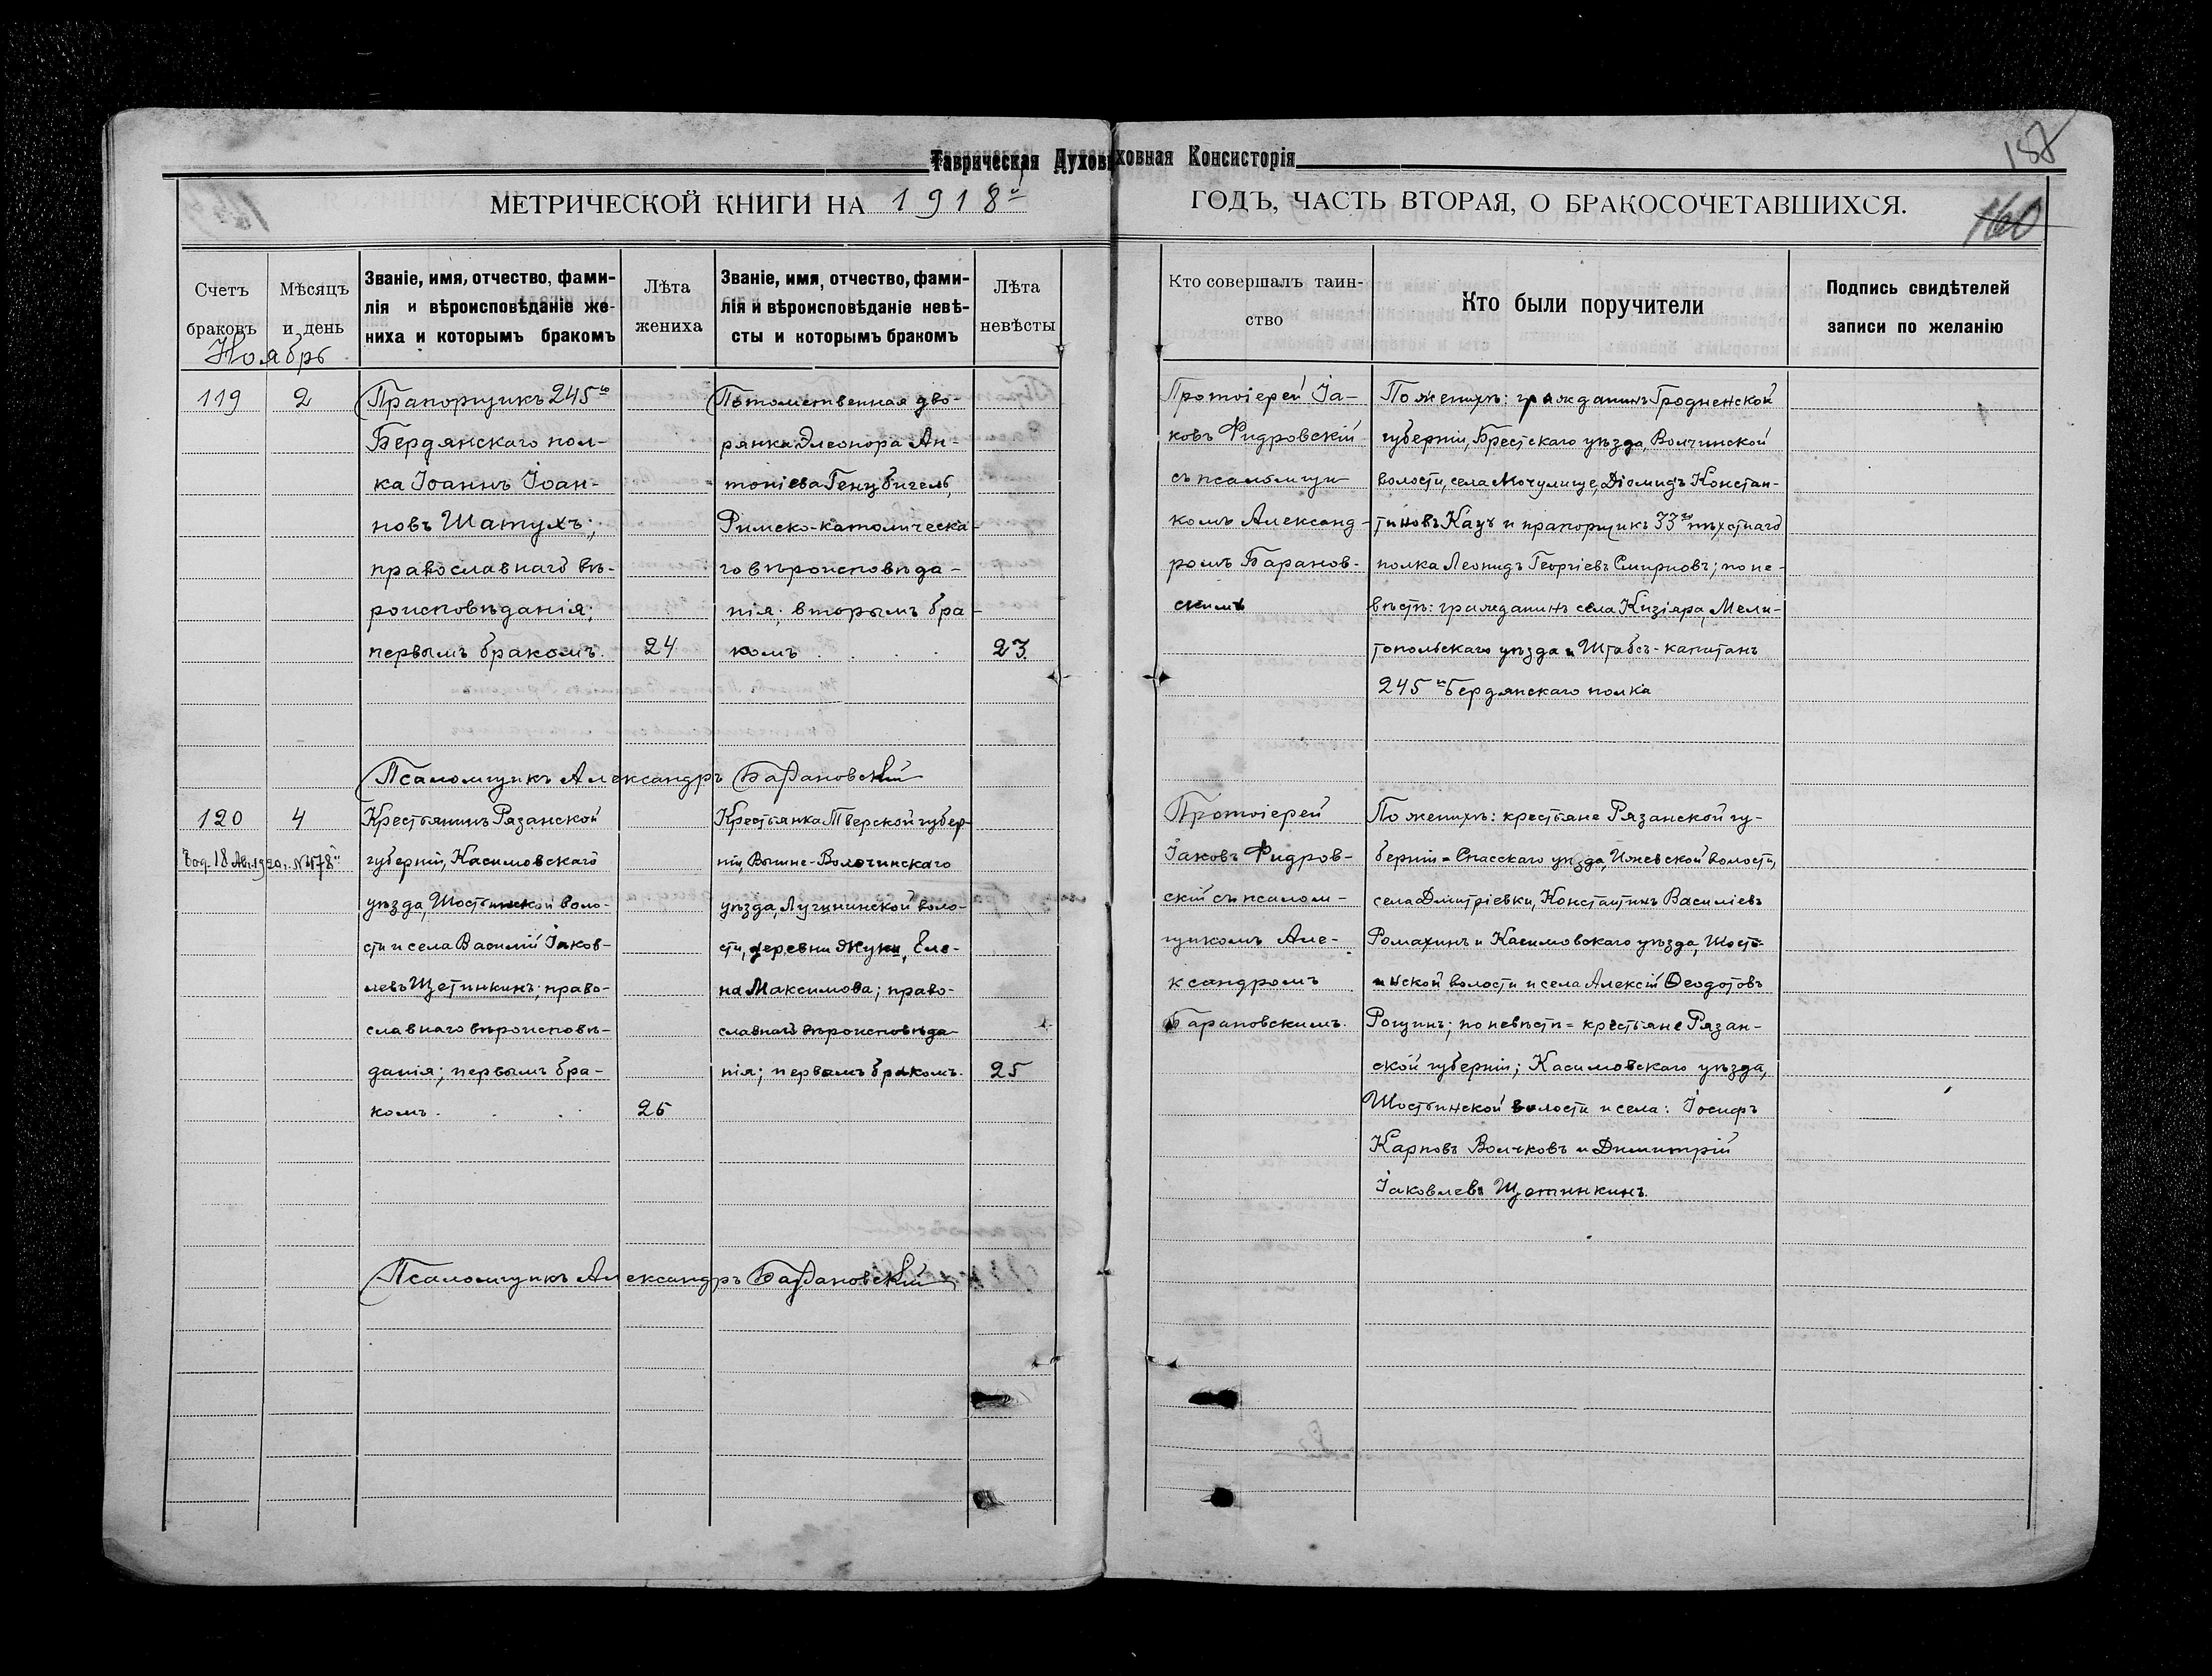 Таврическая Духовная Консисторія
188
МЕТРИЧЕСКОЙ КНИГИ НА 1918й ГОДЪ, ЧАСТЬ ВТОРАЯ, О БРАКОСОЧЕТАВШИХСЯ.
160
Счетъ браковъ
Мѣсяцъ и день
Званіе, имя, отчество, фами-
лія и вѣроисповѣданіе же-
ниха и которымъ бракомъ
Лѣта жениха
Званіе, имя, отчество, фами-
лія и вѣроисповѣданіе невѣ-
сты и которымъ бракомъ
Лѣта невѣсты
Кто совершалъ таин-
ство
Кто были поручители
Подпись свидѣтелей
записи по желанію
Ноябрь
119
2
Прапорщикъ 245го
Бердянскаго пол-
ка Іоаннъ Іоан-
новъ Шатухъ;
православнаго вѣ-
роисповѣданія;
первымъ бракомъ.
24
Потомственная дво-
рянка Элеонора Ан-
тоніева Генцбигель,
Римско-католическа-
го вѣроисповѣда-
нія; вторымъ бра-
комъ
23.
Протоіерей Іа-
ковъ Фидровскій
съ псаломщи-
комъ Александ-
ромъ Баранов-
скимъ
По женихѣ: гражданинъ Гродненской
губерніи, Брестскаго уѣзда, Волчинской
волости, села Мочулище, Діомидъ Констан-
тиновъ Кацъ и прапорщикъ 33го пѣхотнаго
полка Леонидъ Георгіевъ Смирновъ; по не-
вѣстѣ: гражданинъ села Кизіяра, Мели-
топольскаго уѣзда и Штабсъ-капитанъ
245го Бердянскаго полка
Псаломщикъ Александръ Барановскій
120
4
Крестьянинъ Рязанской
губерніи, Касимовскаго
уѣзда, Шостьинской воло-
сти и села Василій Іаков-
левъ Щетинкинъ; право-
славнаго вѣроисповѣ-
данія; первымъ бра-
комъ.
25
Крестьянка Тверской губер-
ніи, Вышне-Волочинскаго
уѣзда, Лугининской воло-
сти, деревни Жуки, Еле-
на Максимова; право-
славнаго вѣроисповѣда-
нія; первымъ бракомъ.
25
Протоіерей
Іаковъ Фидров-
скій съ псалом-
щикомъ Але-
ксандромъ
Барановскимъ.
По женихѣ: крестьяне Рязанской гу-
берніи = Спасскаго уѣзда, Ижевской волости,
села Дмитріевки, Константинъ Василіевъ
Ромахинъ и Касимовскаго уѣзда, Шость-
инской волости и села Алексій Ѳеодотовъ
Рощинъ; по невѣстѣ = крестьяне Рязан-
ской губерніи; Касимовскаго уѣзда,
Шостьинской волости и села: Іосифъ
Карповъ Волчковъ и Димитрій
Іаковлевъ Щетинкинъ.
Псаломщикъ Александръ Барановскій